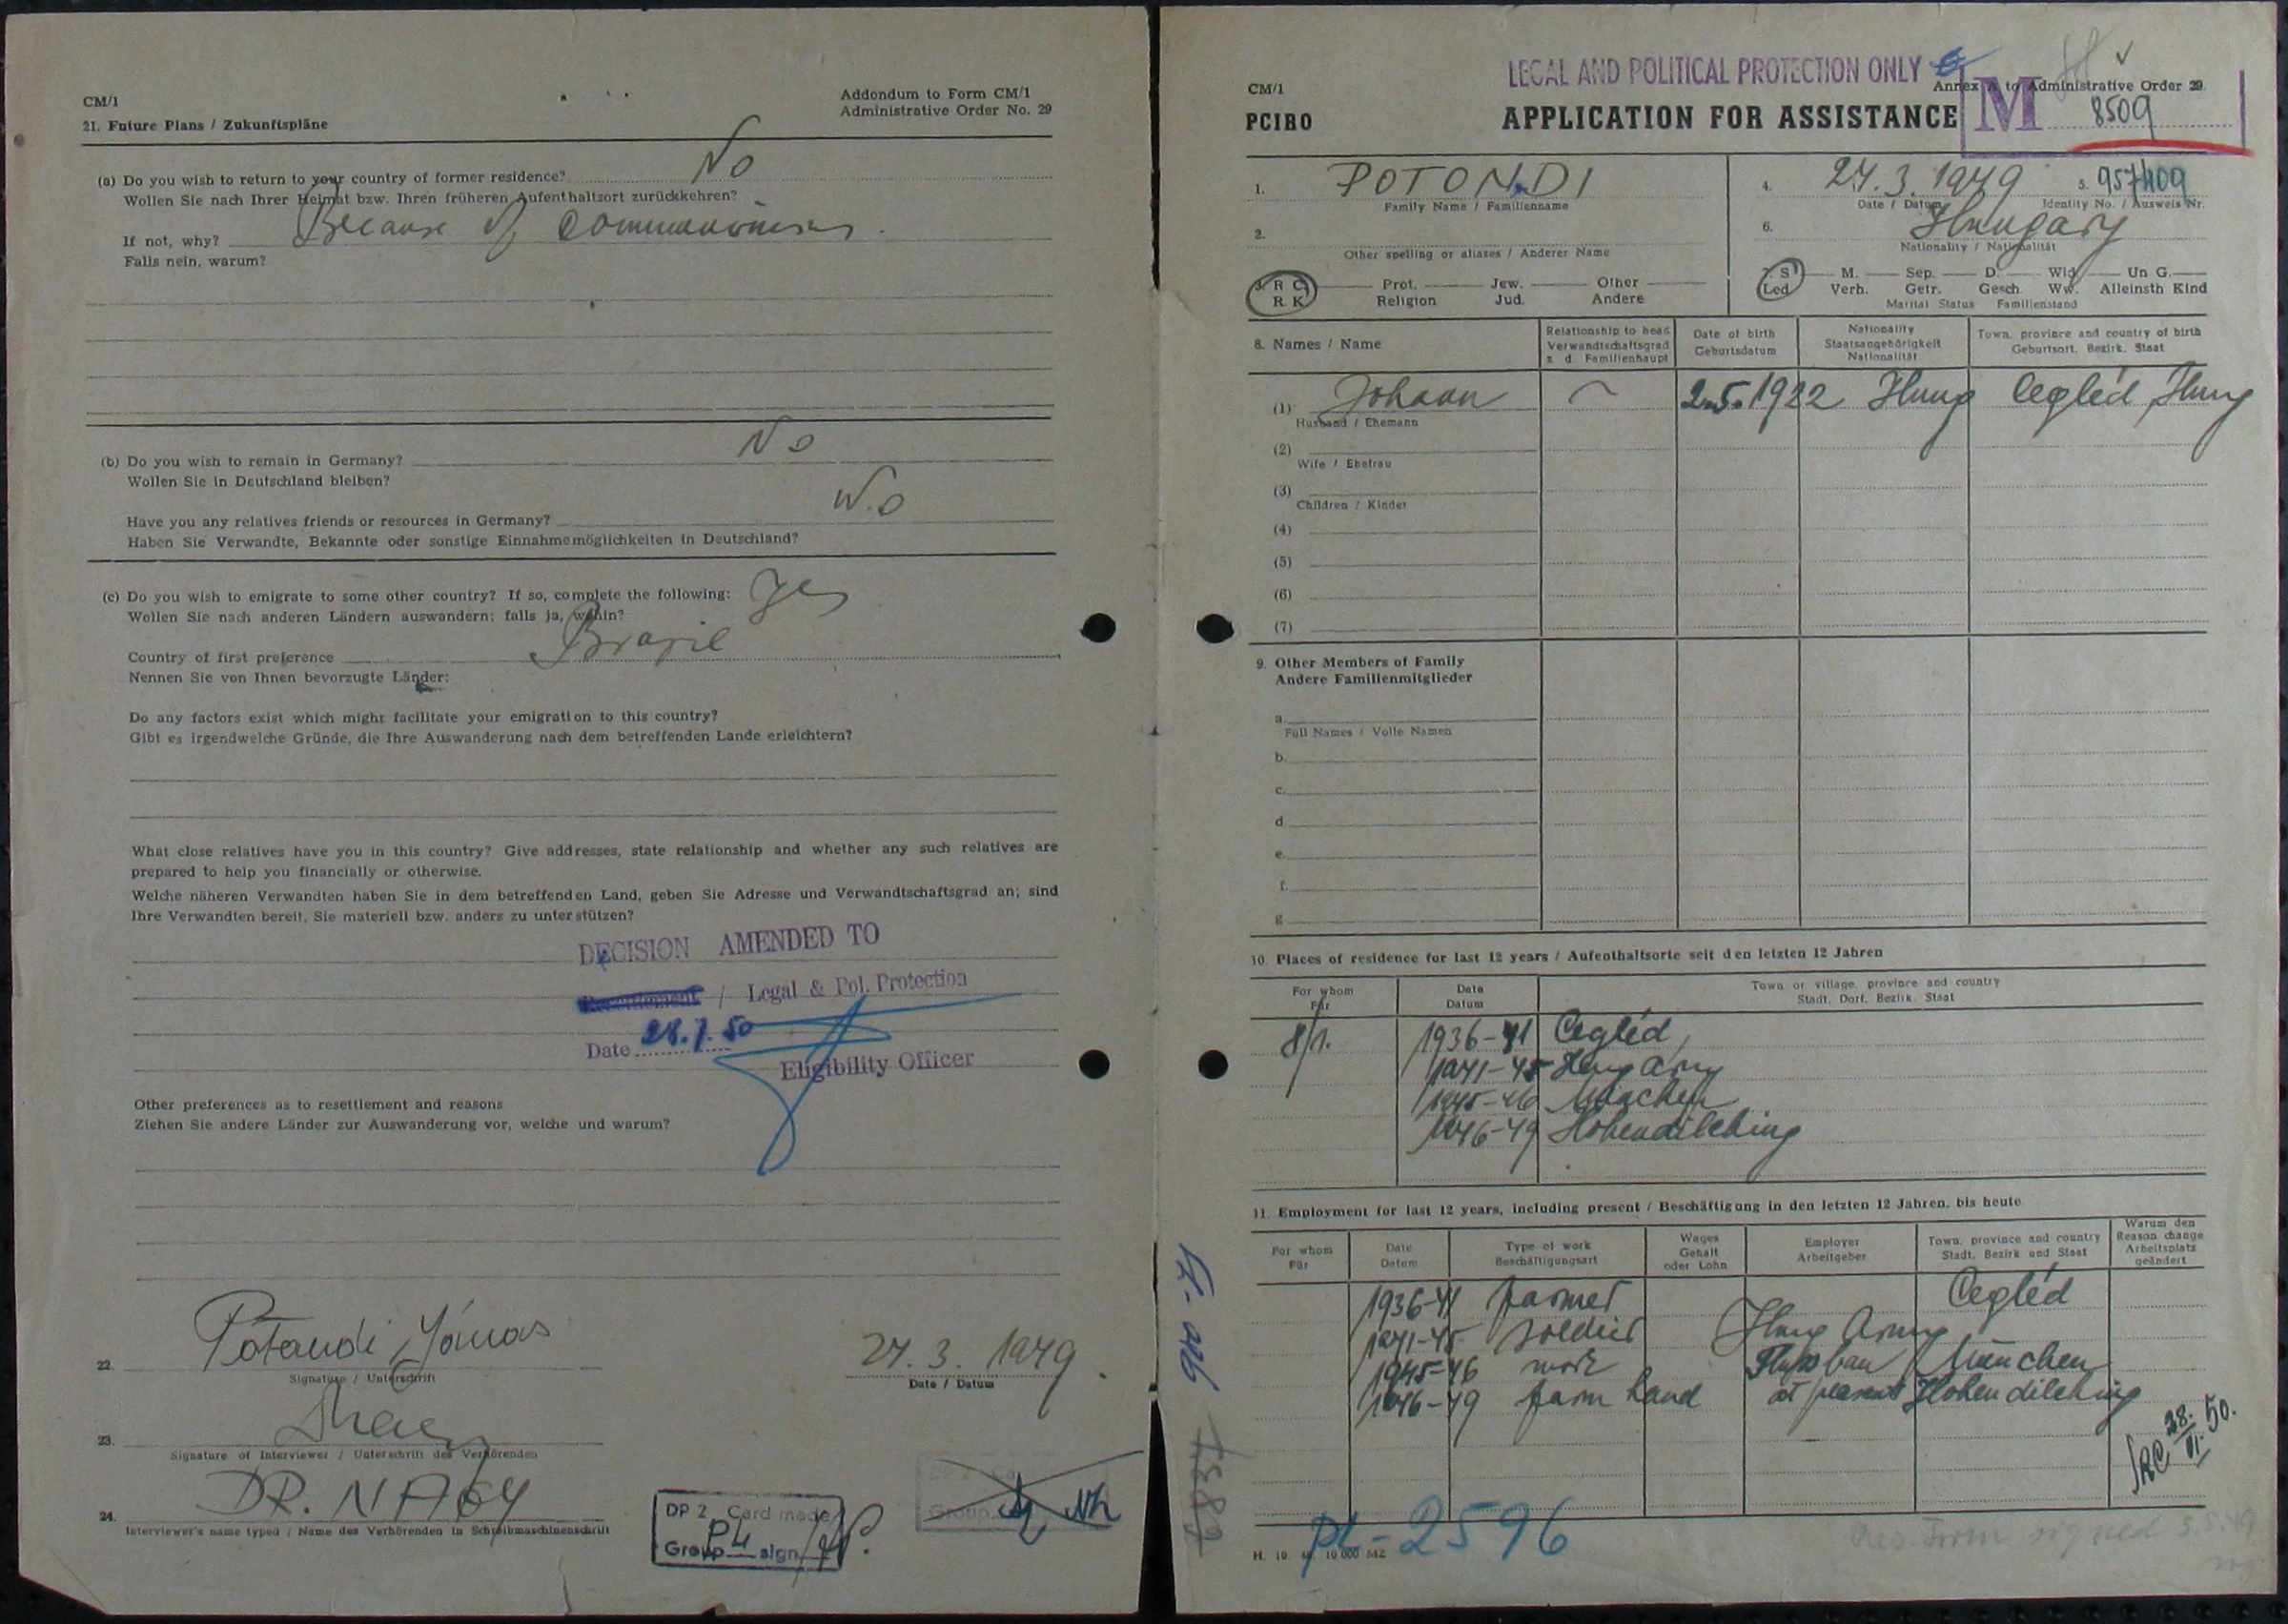 CM/1
Addondum to Form CM/1
Administrative Order No. 29
21. Future Plans / Zukunftspläne
(a) Do you wish to return to your country of former residence? No
Wollen Sie nach Ihrer Heimat bzw. Ihren früheren Aufenthaltsort zurückkehren?
If not, why? Because of
Falls nein, warum?
(b) Do you wish to remain in Germany? No
Wollen Sie in Deutschland bleiben?
Have you any relatives friends or resources in Germany? No
Haben Sie Verwandte, Bekannte oder sonstige Einnahmemöglichkeiten in Deutschland?
(c) Do you wish to emigrate to some other country? If so, complete the following: Yes
Wollen Sie nach anderen Ländern auswandern; falls ja, wohin?
Country of first preference Brazil
Nennen Sie von Ihnen bevorzugte Länder:
Do any factors exist which might facilitate your emigration to this country?
Gibt es irgendwelche Gründe, die Ihre Auswanderung nach dem betreffenden Lande erleichtern?
What close relatives have you in this country? Give addresses, state relationship and whether any such relatives are
prepared to help you financially or otherwise.
Welche näheren Verwandten haben Sie in dem betreffenden Land, geben Sie Adresse und Verwandtschaftsgrad an; sind
Ihre Verwandten bereit, Sie materiell bzw. anders zu unterstützen?
DECISION AMENDED TO
/ Legal & Pol. Protection
Date 28.7.50
Eligibility Officer
Other preferences as to resettlement and reasons
Ziehen Sie andere Länder zur Auswanderung vor, welche und warum?
22. Potondi János
Signature / Unterschrift
24. 3. 1949.
Date / Datum
23.
Signature of Interviewer / Unterschrift des Verhörenden
24. DR. NAGY
Interviewer's name typed / Name des Verhörenden in Schreibmaschinenschrift
DP 2 Card made
Group P4 sign
LEGAL AND POLITICAL PROTECTION ONLY
CM/1
Annex A to Administrative Order 29.
PCIRO
APPLICATION FOR ASSISTANCE
M 8509
1. POTONDI
Family Name / Familienname
4. 24.3.1949
Date / Datum
5. 957409
Identity No. / Ausweis Nr.
2.
Other spelling or aliases / Anderer Name
6. Hungary
Nationality / Nationalität
3. R C. Prot. Jew. Other
R. K. Religion Jud. Andere
7. S M. Sep. D. Wid. Un G.
Led. Verh. Getr. Gesch. Ww. Alleinsth Kind
Marital Status Familienstand
8. Names / Name
Relationship to head
Verwandtschaftsgrad
z. d. Familienhaupt
Date of birth
Geburtsdatum
Nationality
Staatsangehörigkeit
Nationalität
Town, province and country of birth
Geburtsort, Bezirk, Staat
(1) Johann 2.5.1922 Hung Cegléd, Hung
Husband / Ehemann
(2)
Wife / Ehefrau
(3)
Children / Kinder
(4)
(5)
(6)
(7)
9. Other Members of Family
Andere Familienmitglieder
a.
Full Names / Volle Namen
b.
c.
d.
e.
f.
g.
10. Places of residence for last 12 years / Aufenthaltsorte seit den letzten 12 Jahren
For whom
Für
Date
Datum
Town or village, province and country
Stadt, Dorf, Bezirk, Staat
8/1. 1936-41 Cegléd,
1941-45 Hung Army
1945-46 München
1946-49 Hohendilching
11. Employment for last 12 years, including present / Beschäftigung in den letzten 12 Jahren, bis heute
For whom
Für
Date
Datum
Type of work
Beschäftigungsart
Wages
Gehalt
oder Lohn
Employer
Arbeitgeber
Town, province and country
Stadt, Bezirk und Staat
Warum den
Reason change
Arbeitsplatz
geändert
1936-41 farmer Cegléd
1941-45 soldier Hung Army
1945-46 work Flussbau München
1946-49 farm hand at present Hohendilching
PL-2596
H. 10. 48. 10 000 MZ